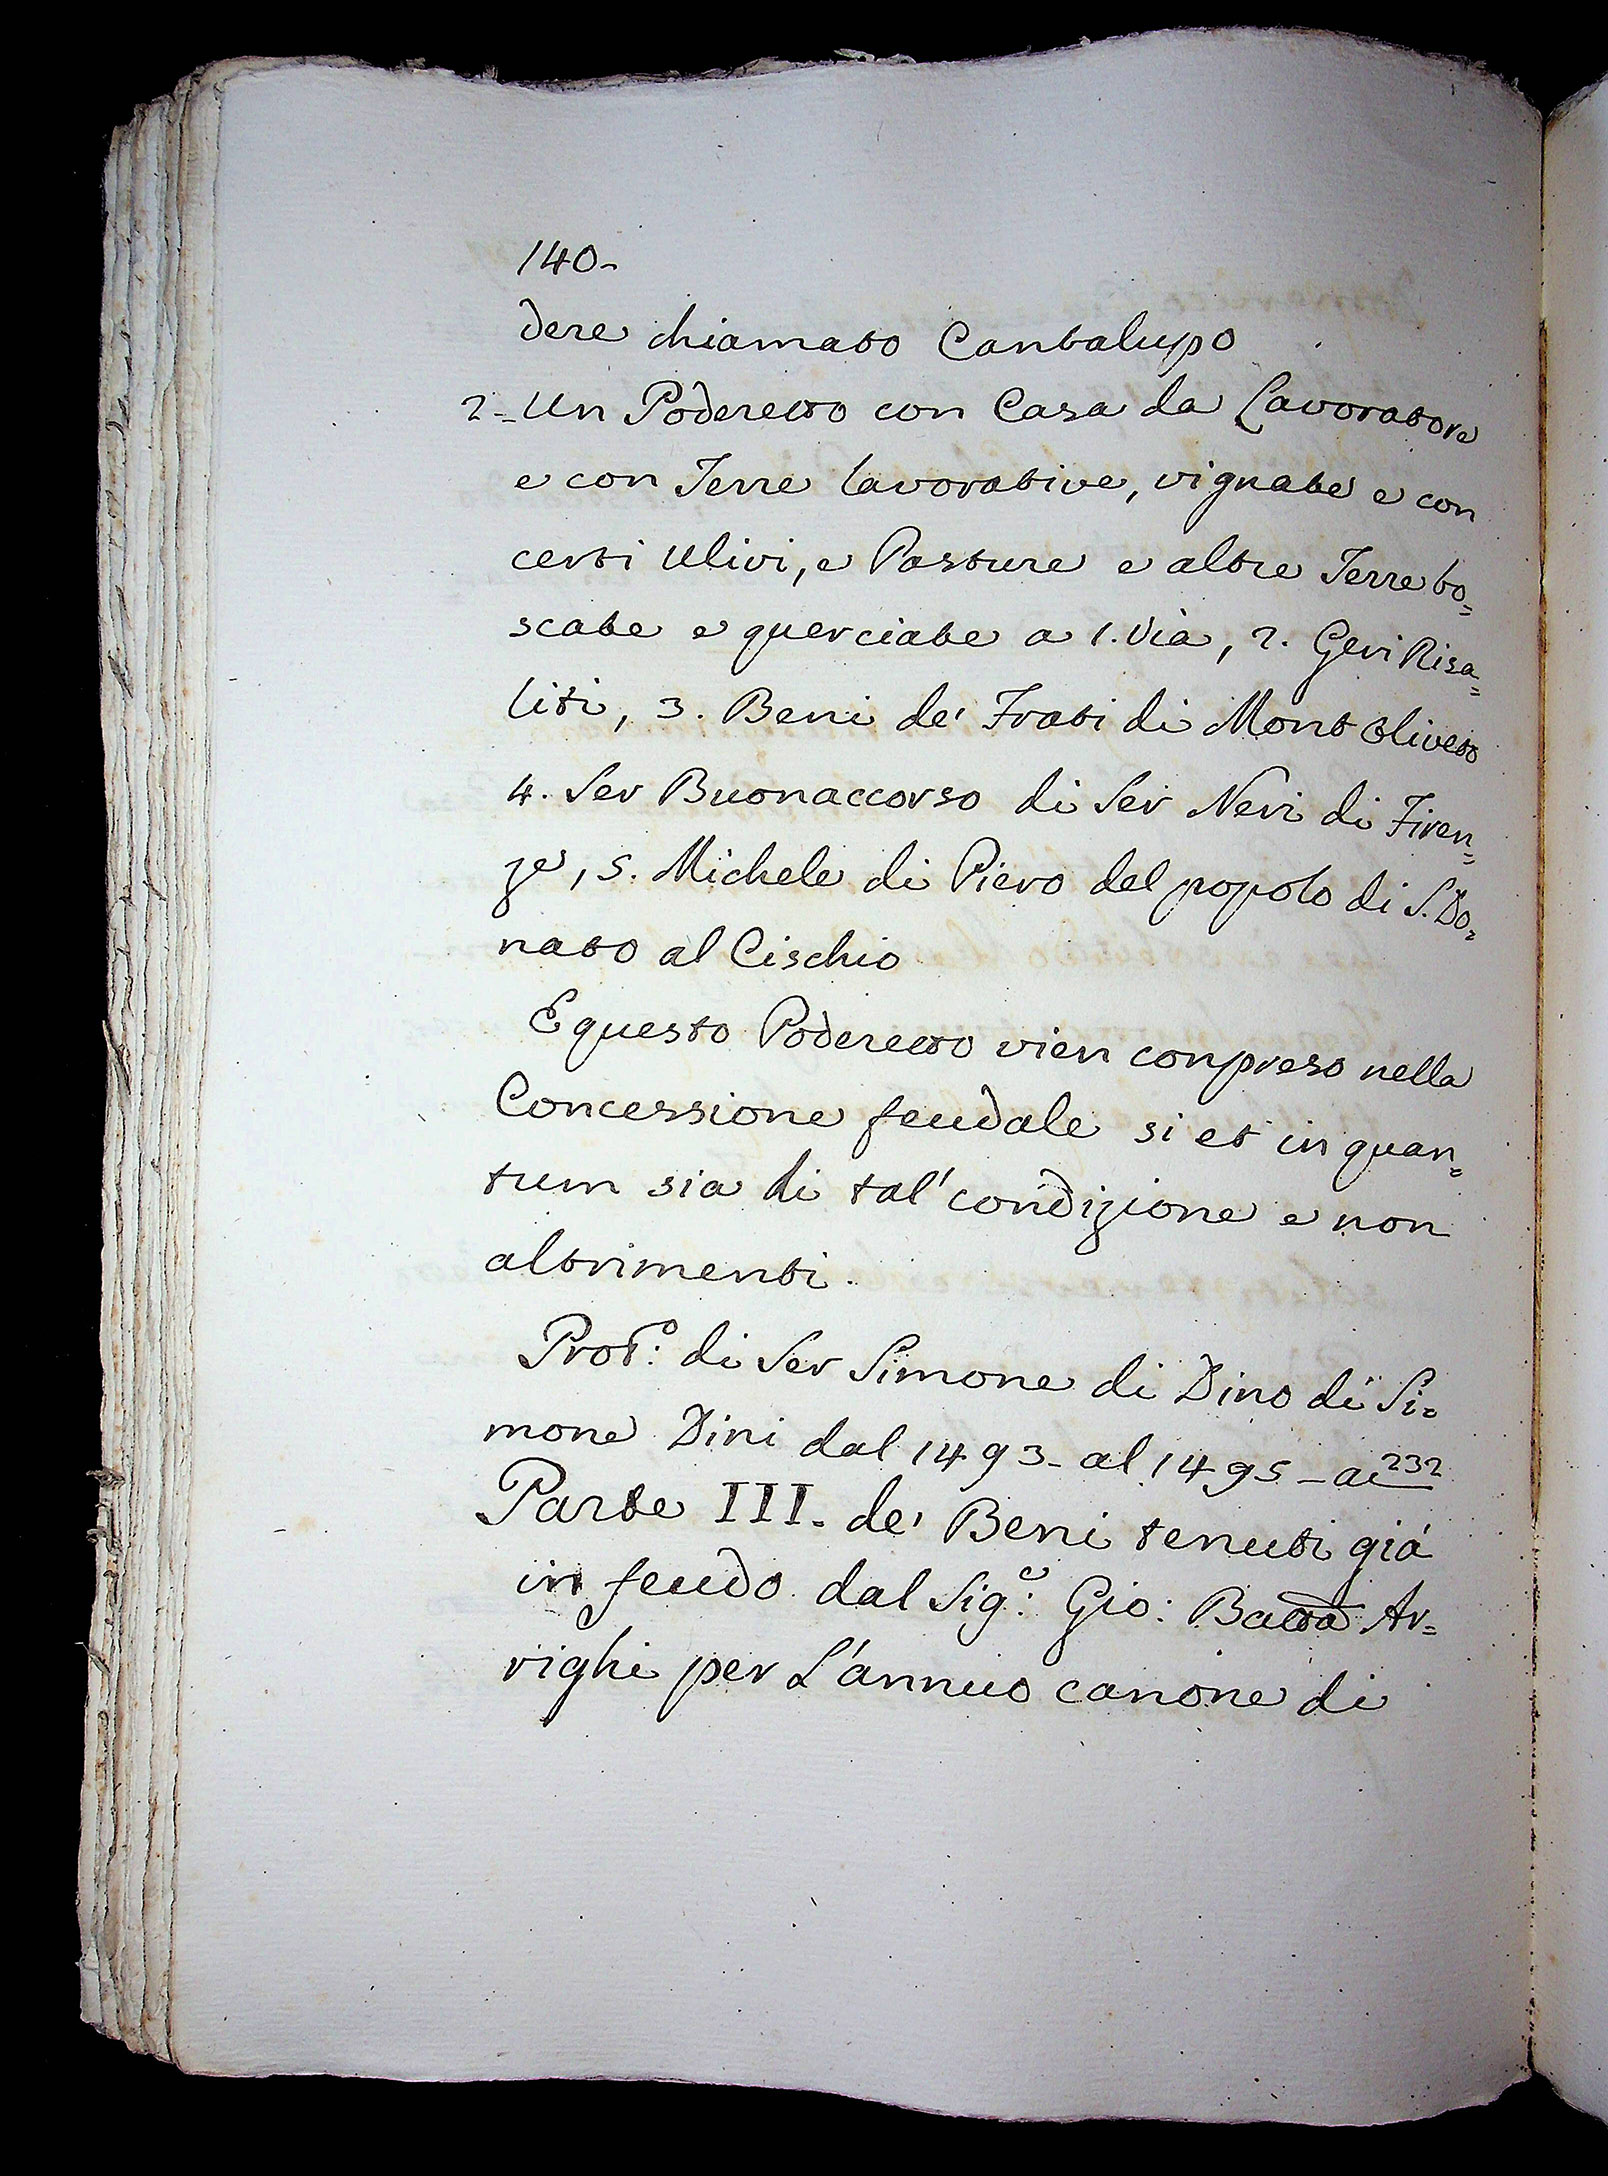 140-
dere chiamato Cantalupo
2- Un Poderetto con Casa da Lavoratore
e con Terre lavorative, vignate e con
certi Ulivi, e Pasture e altre Terre bo=
scate e querciate a 1. Via, 2. Geri Risa=
liti, 3. Beni de' Frati di Mont Oliveto
4. Ser Buonaccorso di Ser Neri di Firen=
ze, 5. Michele di Piero del popolo di S. Do=
nato al Cischio
E questo Poderetto vien conpreso nella
Concessione feudale si et in quan=
tum sia di tal' condizione e non
altrimenti.
Prot.º: di Ser Simone di Dino di Si=
mone Dini dal 1493- al 1495- ac 232
Parte III. de' Beni tenuti già
in feudo dal Sig.r: Gio: Batta Ar=
righi per L'annuo canone di